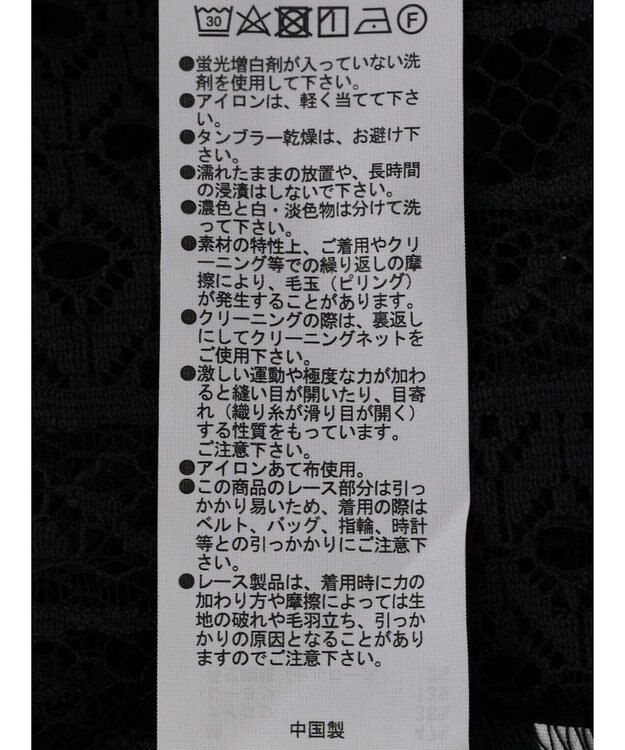 30 F
●蛍光増白剤が入っていない洗
剤を使用して下さい。
●アイロンは、軽く当てて下さ
い。
●タンブラー乾燥は、お避け下
さい。
●濡れたままの放置や、長時間
の浸漬はしないで下さい。
●濃色と白・淡色物は分けて洗
って下さい。
●素材の特性上、ご着用やクリ
ーニング等での繰り返しの摩
擦により、毛玉（ピリング）
が発生することがあります。
●クリーニングの際は、裏返し
にしてクリーニングネットを
ご使用下さい。
●激しい運動や極度な力が加わ
ると縫い目が開いたり、目寄
れ（織り糸が滑り目が開く）
する性質をもっています。
ご注意下さい。
●アイロンあて布使用。
●この商品のレース部分は引っ
かかり易いため、着用の際は
ベルト、バッグ、指輪、時計
等との引っかかりにご注意下
さい。
●レース製品は、着用時に力の
加わり方や摩擦によっては生
地の破れや毛羽立ち、引っか
かりの原因となることがあり
ますのでご注意下さい。
中国製